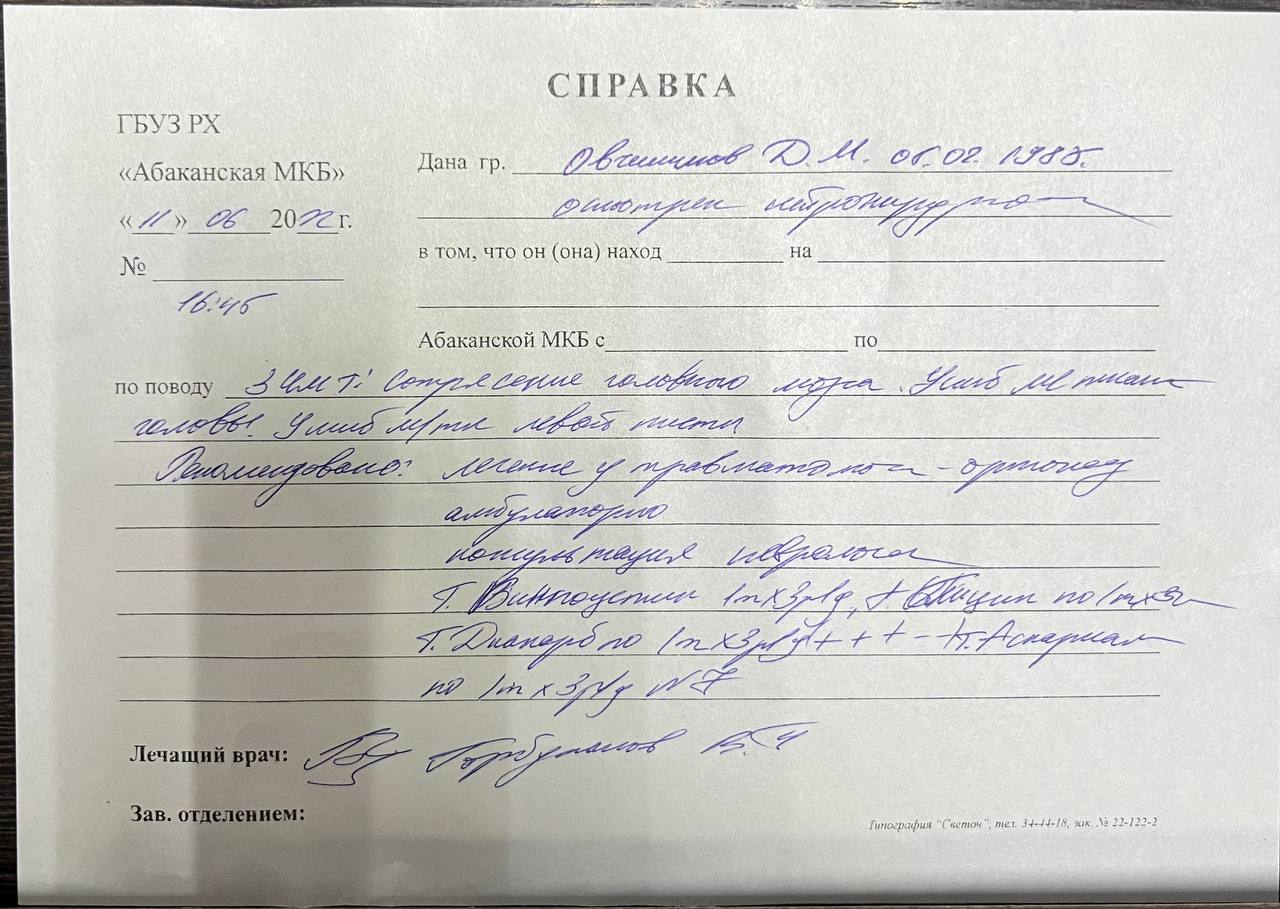 СПРАВКА
ГБУЗ РХ
«Абаканская МКБ»
« 11 » 06 20 г.
№
16:45
Дана гр. Д.М. 02. 198
осмотрен нейрохирургом
в том, что он (она) наход на
Абаканской МКБ с по
по поводу ЗЧМТ: Сотрясение головного мозга. Ушиб
головы. Ушиб м/тк левой кисти
Рекомендовано: лечение у травматолога-ортопеда
амбулаторно
консультация невролога
Т. Винпоцетин 1т х 3р/д, Т. Глицин по 1т х 3р
Т. Диакарб по 1т х 3р/д + + + - + т. Аспаркам
по 1т х 3р/д N 7
Лечащий врач: В.
Зав. отделением:
Типография "Светоч", тел. 34-44-18, зак. № 22-122-2